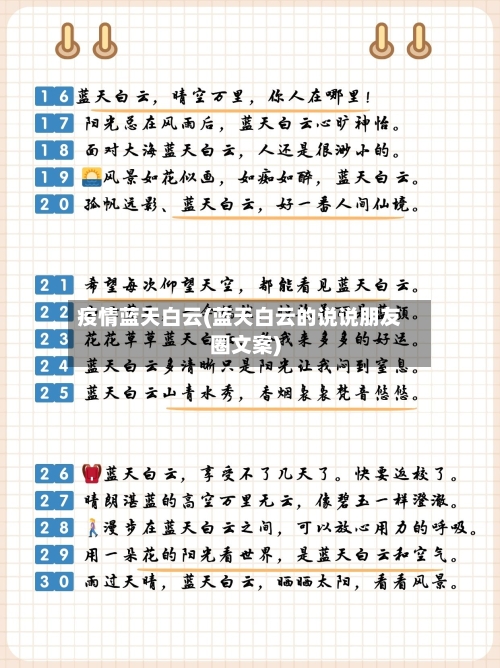 16 蓝天白云，晴空万里，你人在哪里！
17 阳光总在风雨后，蓝天白云心旷神怡。
18 面对大海蓝天白云，人还是很渺小的。
19 🌅风景如花似画，如痴如醉，蓝天白云。
20 孤帆远影、蓝天白云，好一番人间仙境。
21 希望每次仰望天空，都能看见蓝天白云。
22
疫情蓝天白云(蓝天白云的说说朋友
圈文案)
23 花花草草蓝天白
我来多多的好运。
24 蓝天白云多清晰只是阳光让我闷到窒息。
25 蓝天白云山青水秀，香烟袅袅梵音悠悠。
26 🎒蓝天白云，享受不了几天了。快要返校了。
27 晴朗湛蓝的高空万里无云，像碧玉一样澄澈。
28 🚶漫步在蓝天白云之间，可以放心用力的呼吸。
29 用一朵花的阳光看世界，是蓝天白云和空气。
30 雨过天晴，蓝天白云，晒晒太阳，看看风景。